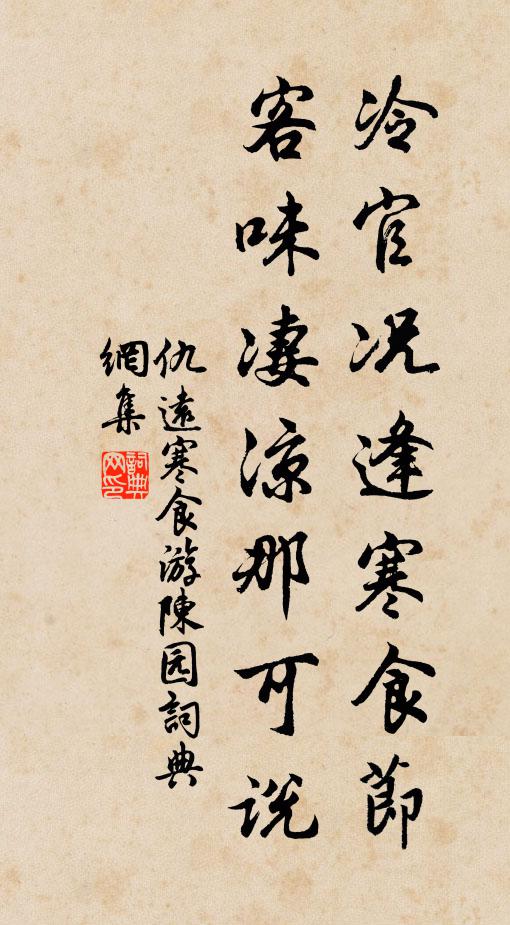 冷官况逢寒食節
客味凄涼那可説
仇遠寒食游陳园詞典
網集
詞典網印